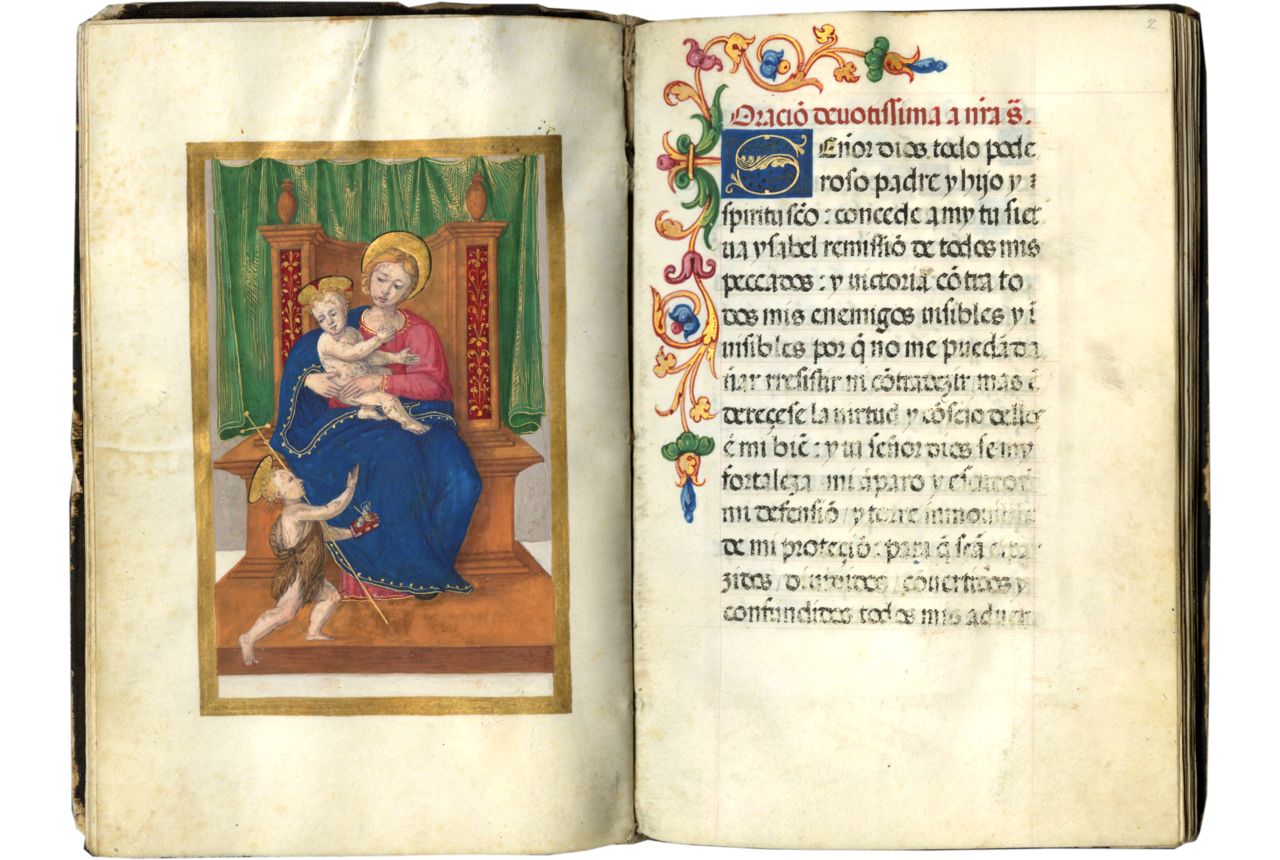 2
Oració deuotissima a nr̃a s̃.
Señor dios todo pode
roso padre y hijo y
spiritu sc̃o : concede a my tu sier
ua ysabel remissiõ de todos mis
peccados : y uictoria cõtra to
dos mis enemigos uisibles y ĩ
uisibles por q̃ no me puedã da
ñar rresistir ni cõtradezir mas ẽ
derecese la uirtud y cõseio dellos
ẽ mi biẽ : y tu señor dios se my
fortaleza mi ãparo y
mi defensiõ / y torre
de mi protecciõ : para q̃ seã
zidos / / cõuertidos y
confundidos todos mis